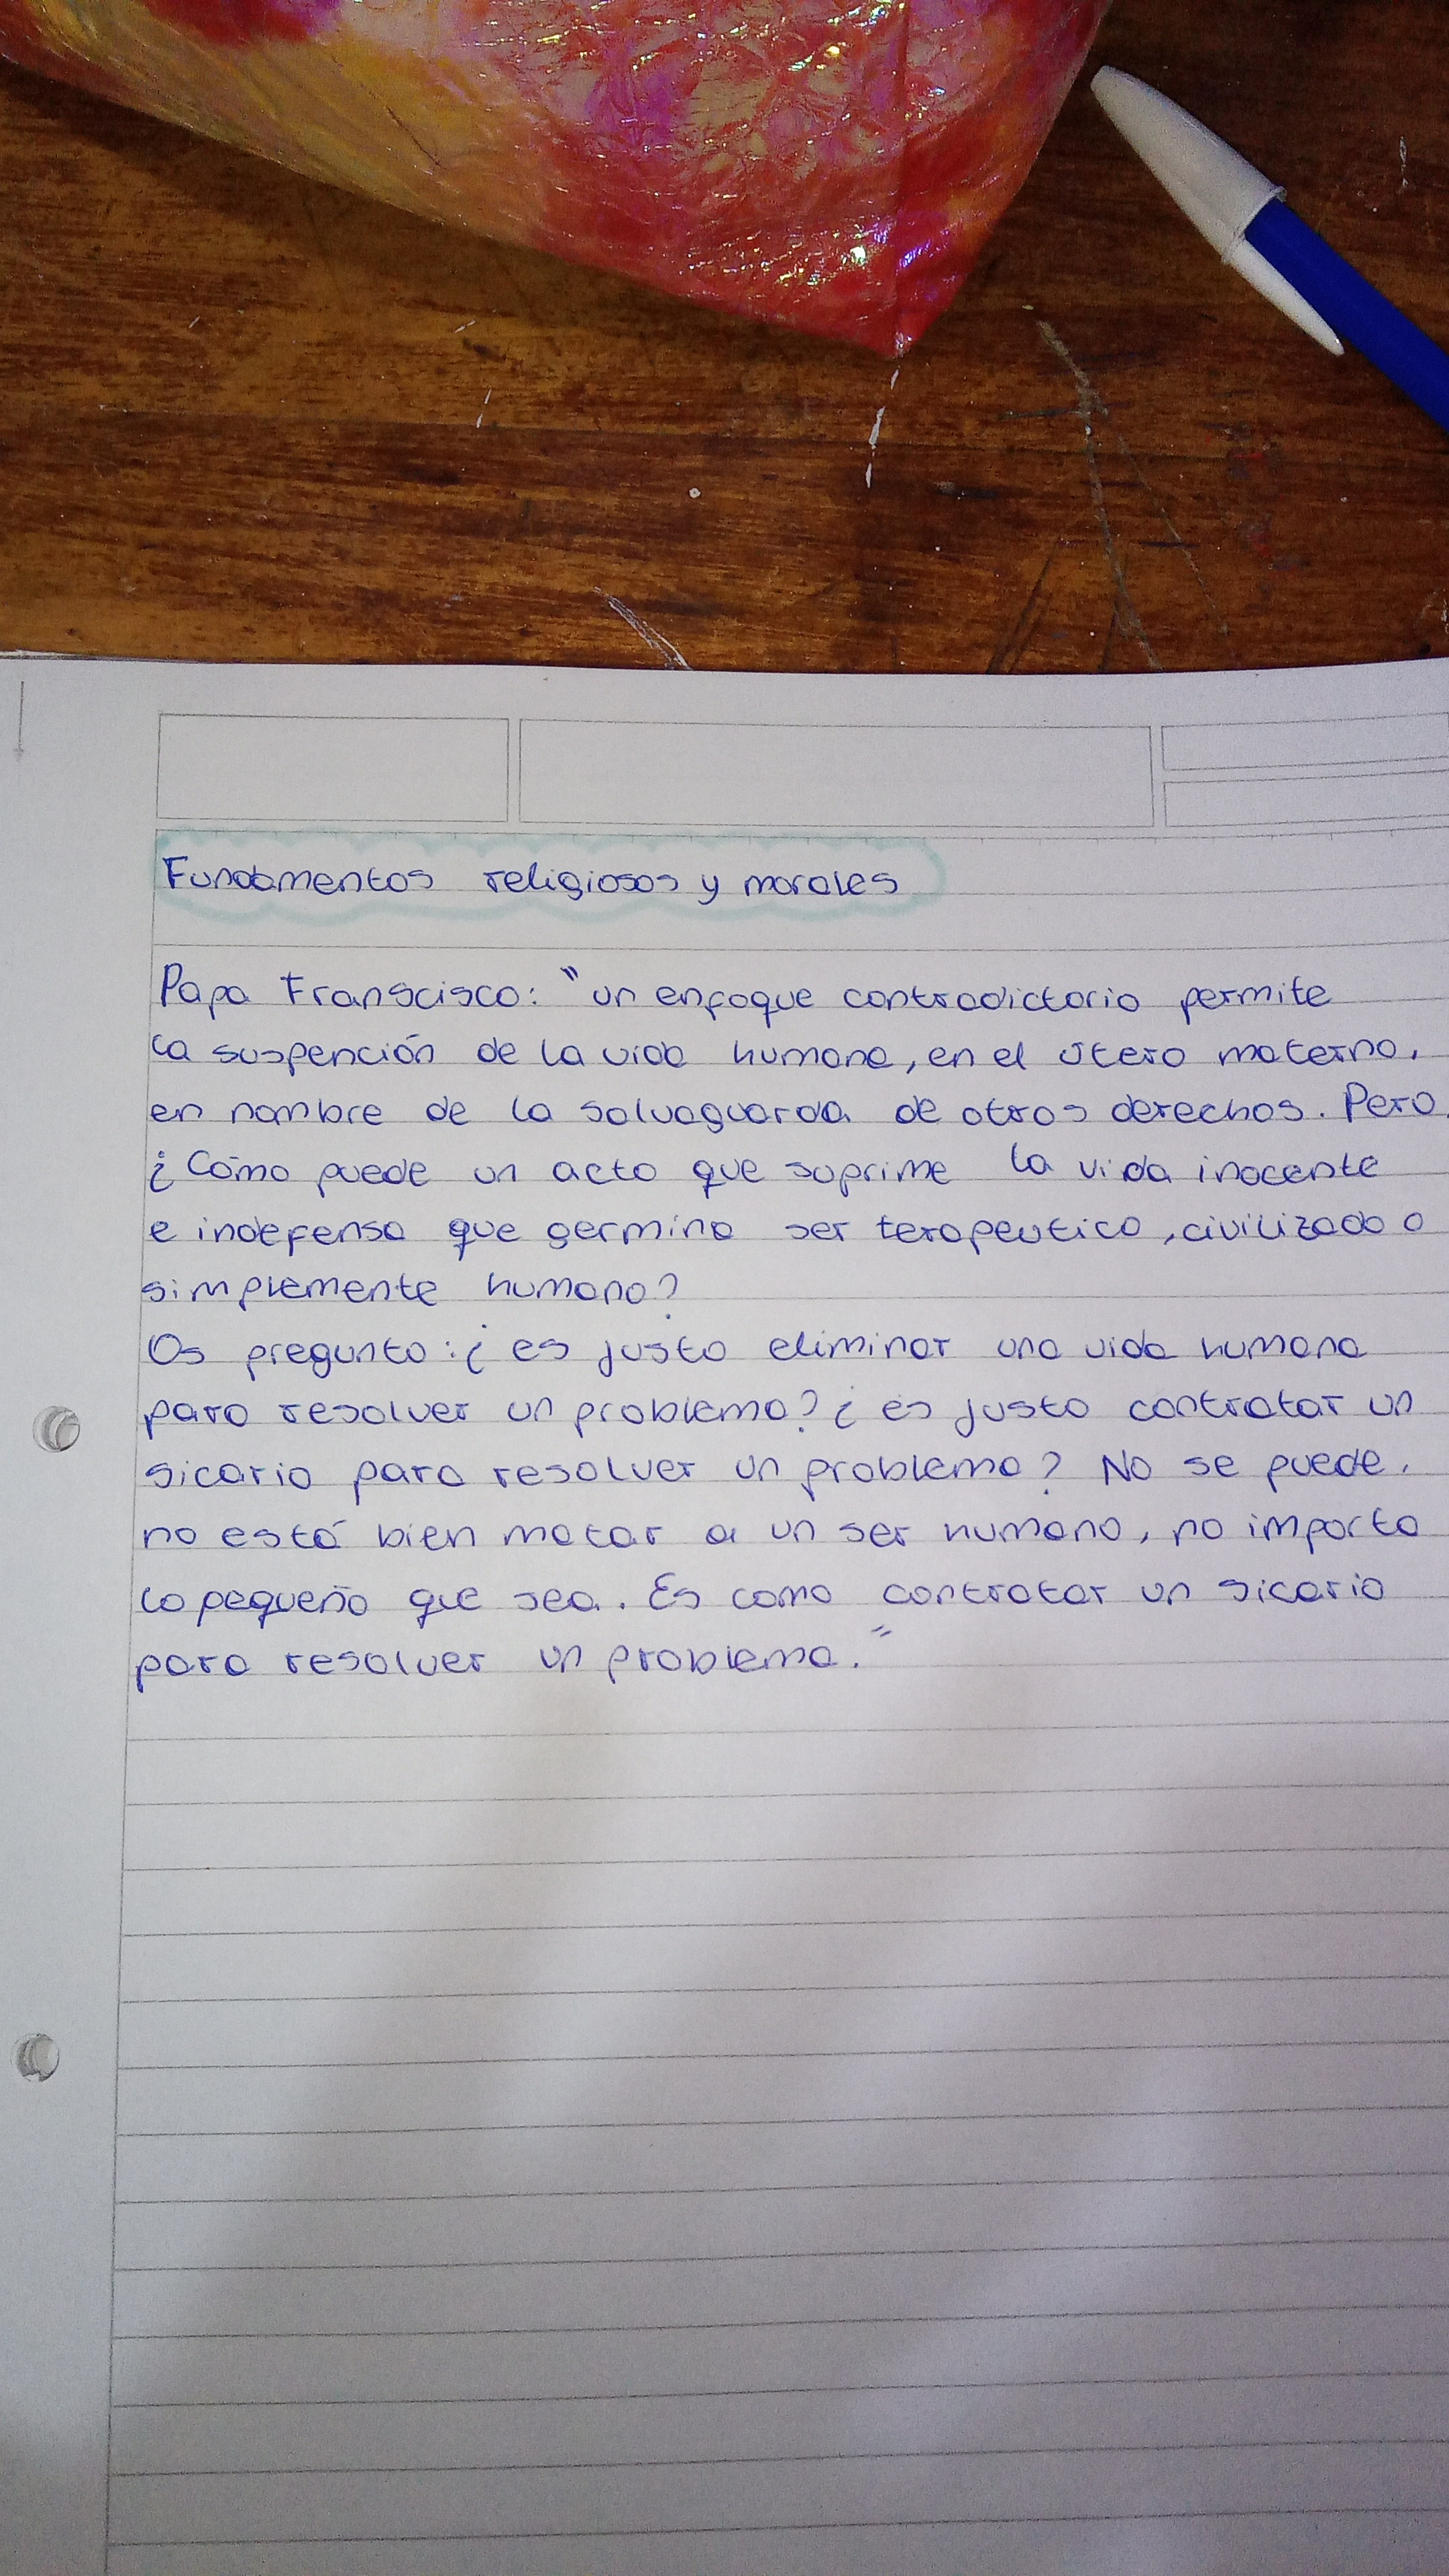 Fundamentos religiosos y morales
Papa Franscisco: "un enfoque contradictorio permite
la suspención de la vida humana, en el útero materno,
en nombre de la salvaguarda de otros derechos. Pero
¿Cómo puede un acto que suprime la vida inocente
e indefensa que germina ser terapeutico, civilizado o
simplemente humano?
Os pregunto: ¿es justo eliminar una vida humana
para resolver un problema? ¿es justo contratar un
sicario para resolver un problema? No se puede,
no está bien matar a un ser humano, no importa
lo pequeño que sea. Es como contratar un sicario
para resolver un problema."